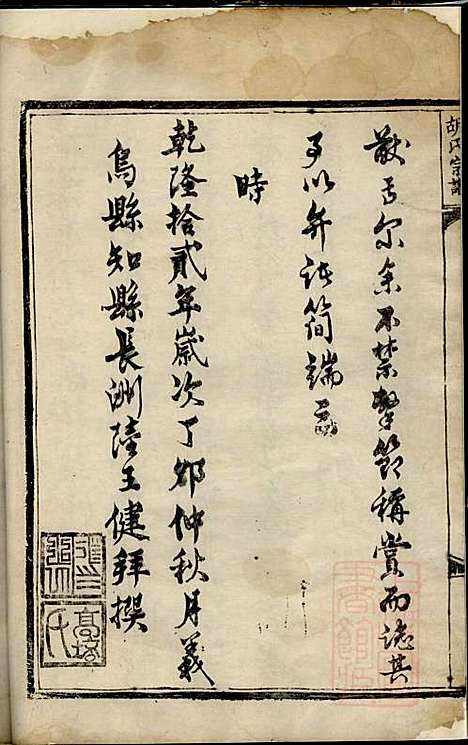 胡氏宗譜
猷
尔余不禁擊節稱賞而誌其
以弁諸簡端云
時
乾隆拾貳年歲次丁卯仲秋月義
烏縣知縣長洲陸玉健拜撰